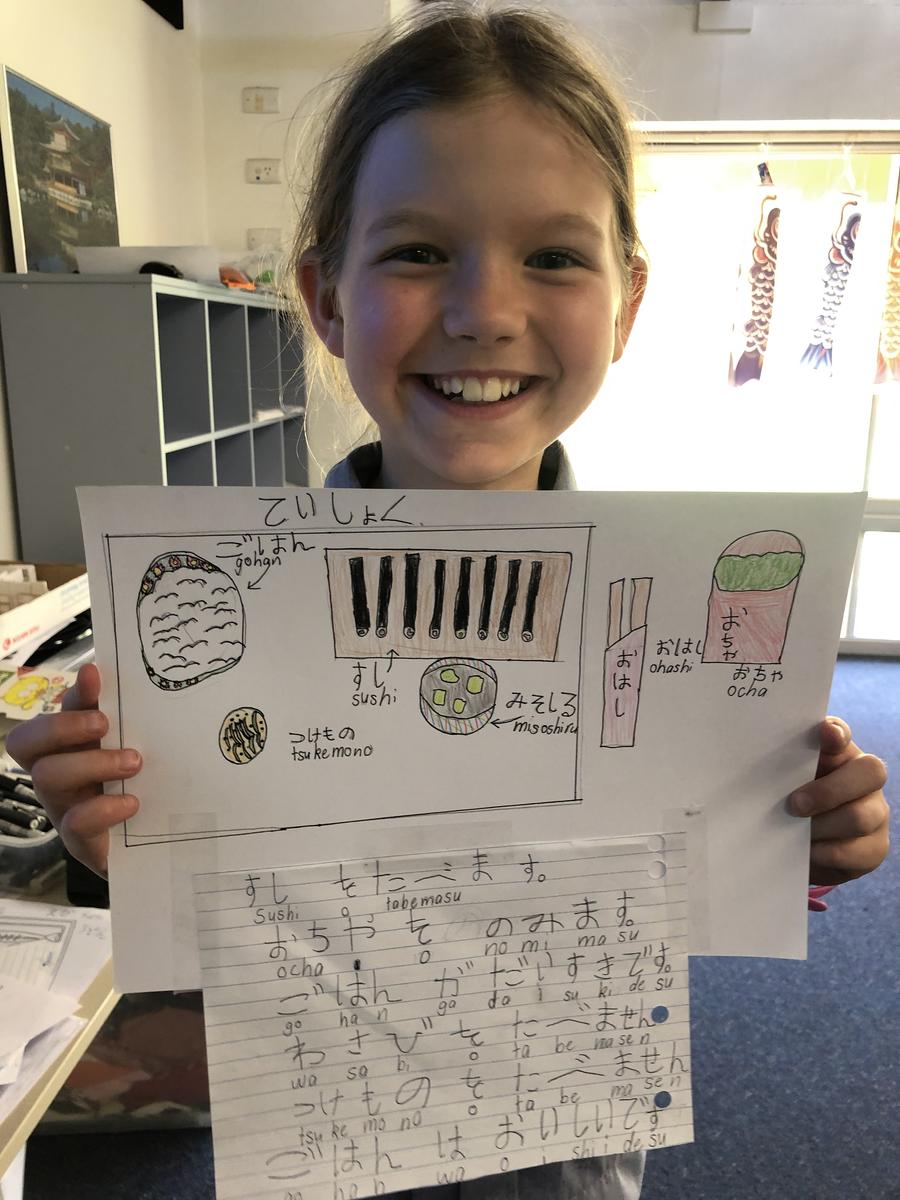 ていしょく
ごはん
gohan
すし
sushi
みそしる
misoshiru
つけもの
tsukemono
おはし
おはし
ohashi
おちゃ
おちゃ
ocha
すし を たべます。
Sushi o tabemasu
おちや を のみます。
ocha o no mi ma su
ごはん が だいすきです。
go ha n ga da i su ki de su
わさび を たべません
wa sa bi o ta be ma se n
つけもの を たべません
tsu ke mo no o ta be ma se n
ごはん は おいしいです
go ha n wa o i shi i de su